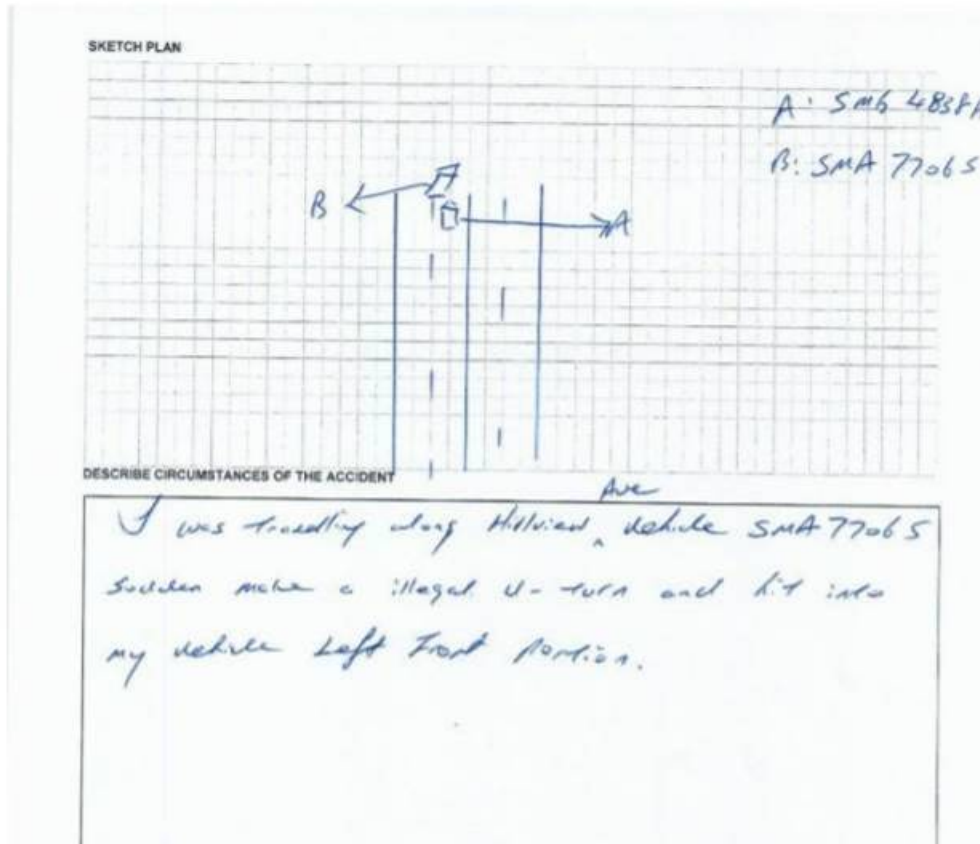 SKETCH PLAN
A: SMG 4838A
B: SMA 7706 S
B A
DESCRIBE CIRCUMSTANCES OF THE ACCIDENT
I was travelling along Hillview Ave vehicle SMA 7706 S
Sudden make a illegal U-turn and hit into
my vehicle Left Front portion.